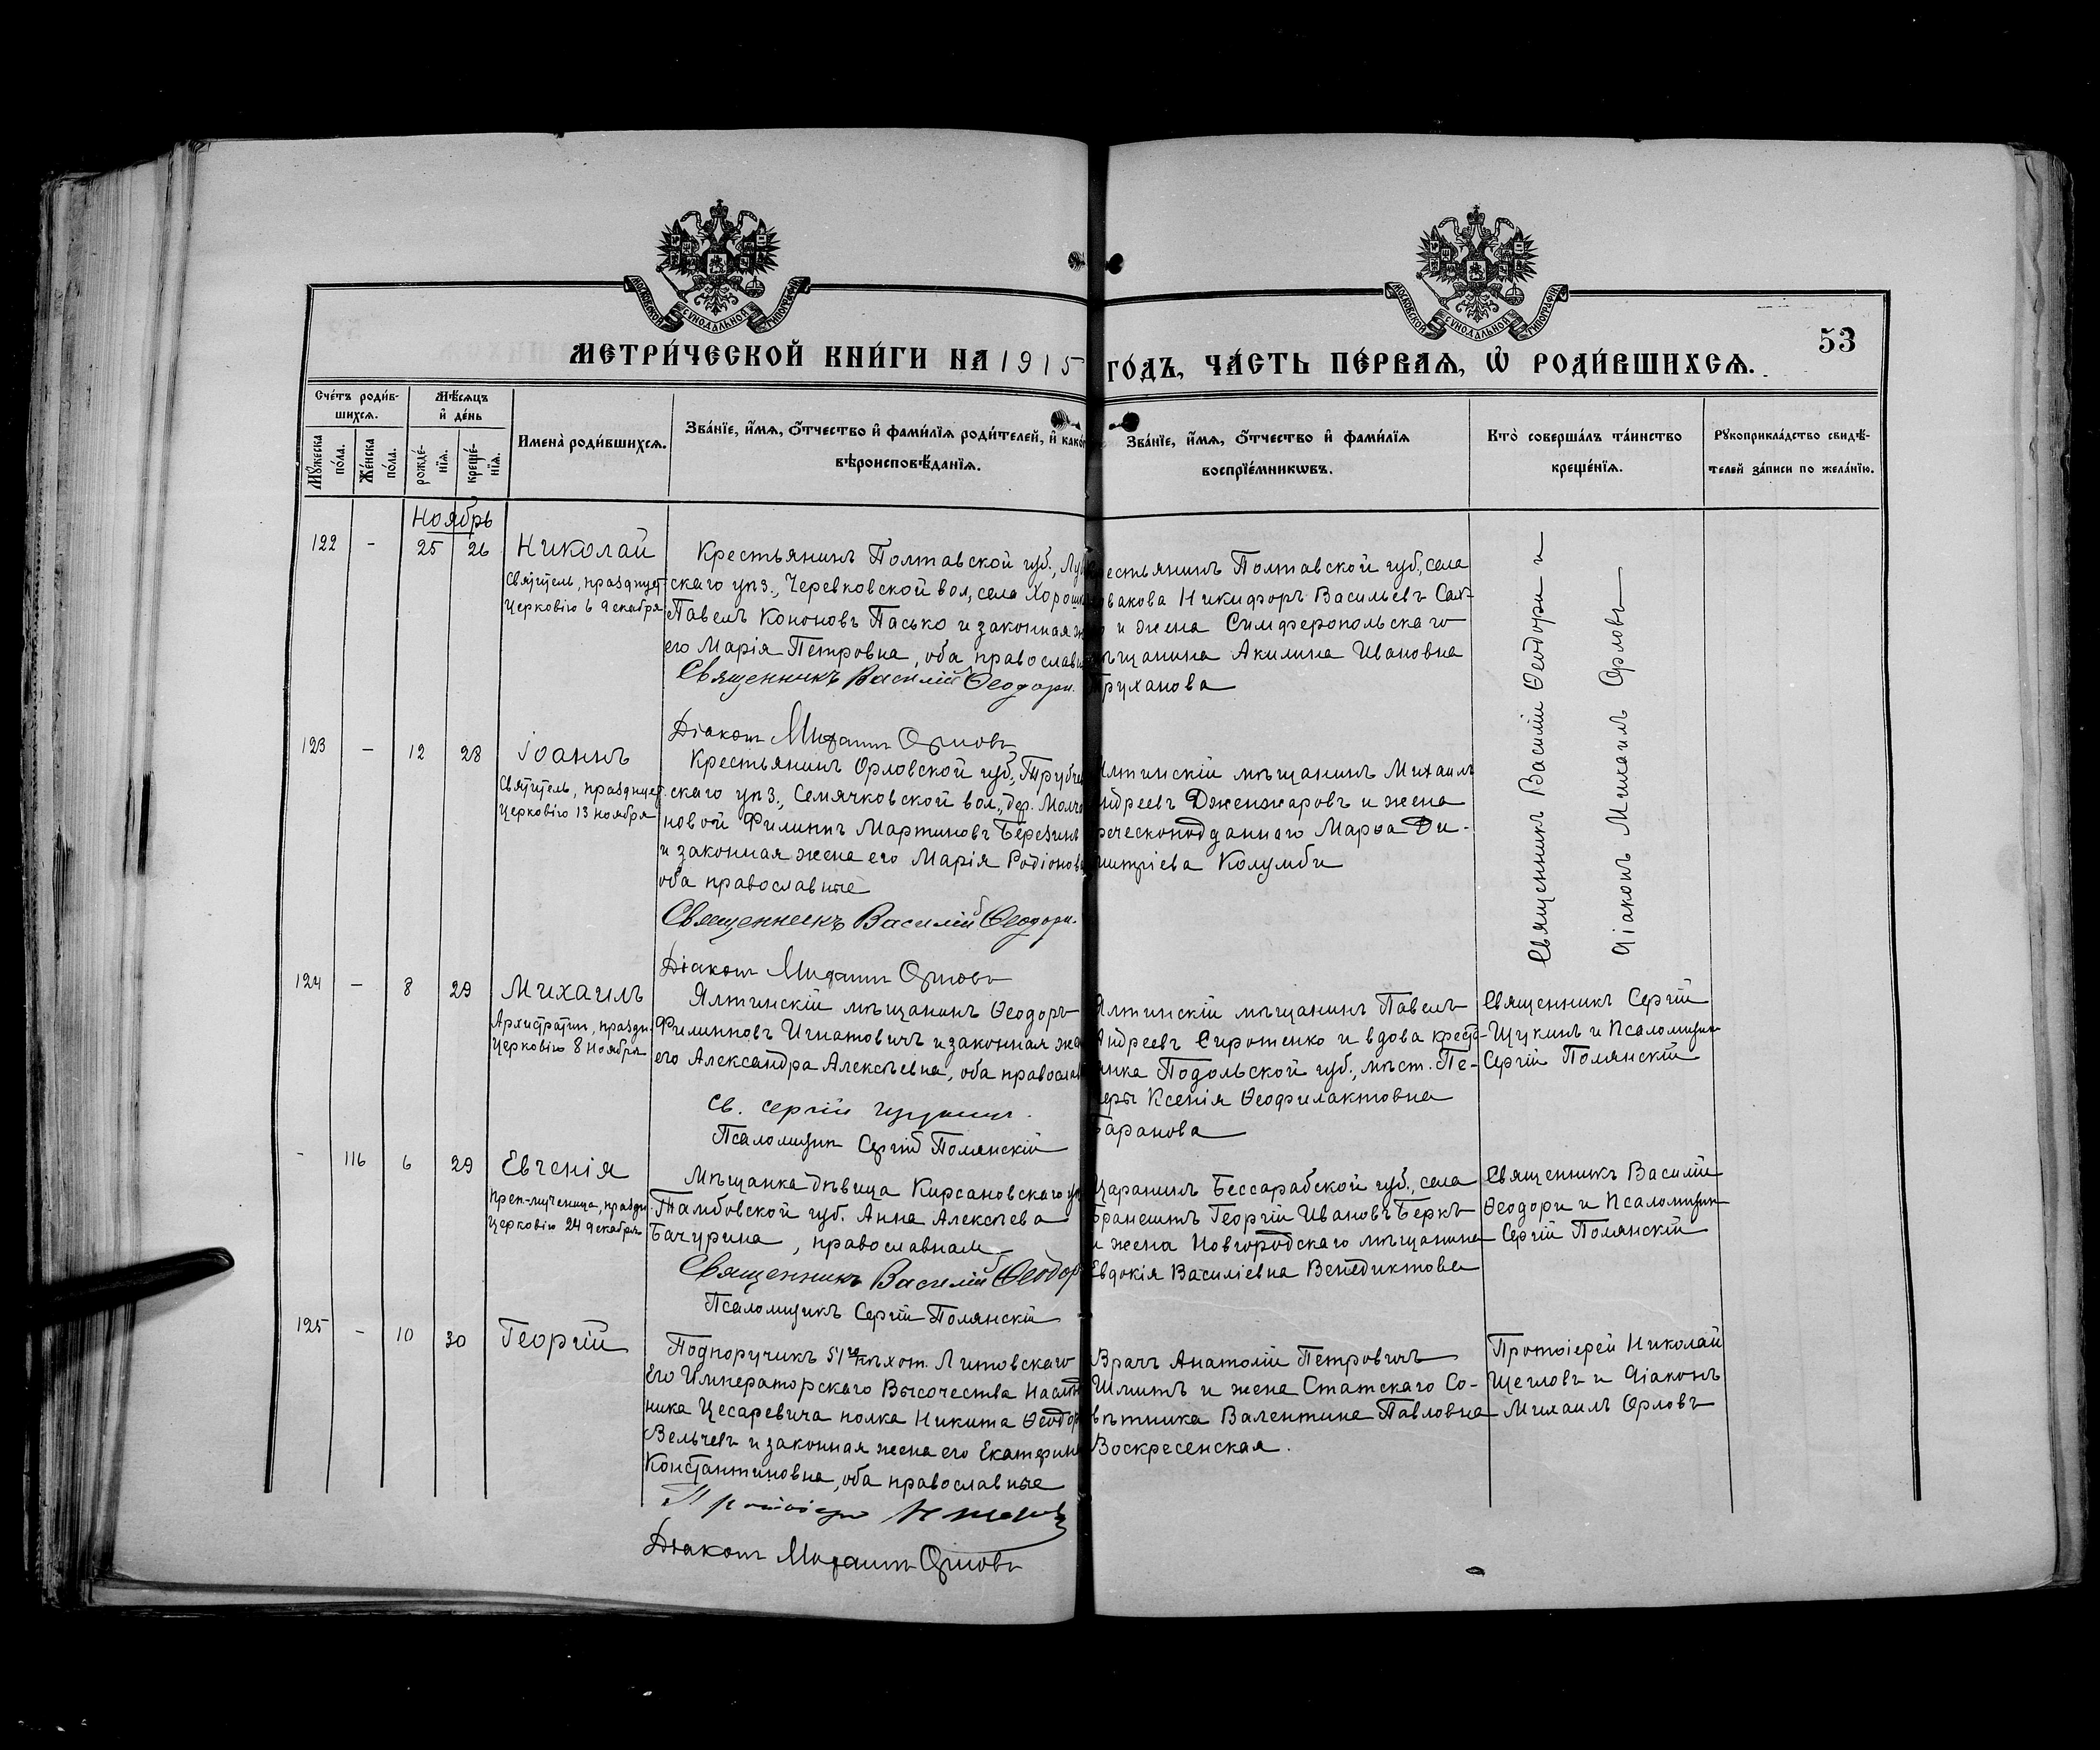 МОСКОВСКОЙ СѴНОДАЛЬНОЙ ТИПОГРАФІИ
МОСКОВСКОЙ СѴНОДАЛЬНОЙ ТИПОГРАФІИ
53
МЕТРИ́ЧЕСКОЙ КНИ́ГИ НА 1915 ГО́ДЪ, ЧА́СТЬ ПЕ́РВАѦ, Ѡ҆ РОДИ́ВШИХСѦ.
Сче́тъ роди́в-
шихсѧ.
Мꙋ́жеска
по́ла.
Же́нска
по́ла.
Мѣ́сѧцъ
и҆ де́нь
рожде́-
нїѧ.
креще́-
нїѧ.
Имена̀ роди́вшихсѧ.
Зва́нїе, и҆́мѧ, ѻ҆́тчество и҆ фами́лїѧ роди́телей, и҆ како́г
вѣроисповѣ́данїѧ.
Зва́нїе, и҆́мѧ, ѻ҆́тчество и҆ фами́лїѧ
воспрїе́мникѡвъ.
Кто̀ соверша́лъ та́инство
креще́нїѧ.
Рꙋкоприкла́дство свидѣ́-
телей за́писи по жела́нїю.
Ноябрь
122 - 25 26 Николай
Святитель, празднует
Церковію 6 декабря
Крестьянинъ Полтавской губ., Луб
скаго уѣз., Черевковской вол., села Хорошк
Павелъ Кононовъ Пасько и законная ж
его Марія Петровна, оба православн
Священникъ Василій Ѳеодори.
Діаконъ Михаилъ Орловъ
рестьянинъ Полтавской губ., села
вакова Никифоръ Васильевъ Сах-
и жена Симферопольскаго
ѣщанина Акилина Ивановна
Труханова
Священникъ Василій Ѳеодори и
Діаконъ Михаилъ Орловъ
123 - 12 28 Іоаннъ
Святитель, празднует.
Церковію 13 ноября
Крестьянинъ Орловской губ., Трубчев
скаго уѣз., Семячковской вол., дер. Молча
новой Филиппъ Мартиновъ Березинъ
и законная жена его Марія Родіонова
оба православные
Священникъ Василій Ѳеодори.
Діаконъ Михаилъ Орловъ
Ялтинскій мѣщанинъ Михаилъ
Андреевъ Дженжаровъ и жена
реческоподданнаго Марѳа Ди-
митріева Колумби
124 - 8 29 Михаилъ
Архистратиг, праздн.
Церковію 8 ноября
Ялтинскій мѣщанинъ Ѳеодоръ
Филипповъ Игнатовичъ и законная же
его Александра Алексѣевна, оба православ
Св. Сергій Щукинъ.
Псаломщик Сергій Полянскій
Ялтинскій мѣщанинъ Павелъ
Андреевъ Сиротенко и вдова крестья-
нка Подольской губ., мѣст. Пе-
еры Ксенія Ѳеофилактовна
Баранова
Священникъ Сергій
Щукинъ и Псаломщик
Сергій Полянскій
- 116 6 29 Евгенія
Преп-мученица, праздн.
Церковію 24 декабря
Мѣщанка дѣвица Кирсановскаго у
Тамбовской губ. Анна Алексѣева
Бачурина, православная
Священникъ Василій Ѳеодор
Псаломщикъ Сергій Полянскій
Царанинъ Бессарабской губ., села
Бранештъ Георгій Ивановъ Беркъ
и жена Новгородскаго мѣщанина
Евдокія Василіевна Венедиктова
Священникъ Василій
Ѳеодори и Псаломщик
Сергій Полянскій
125 - 10 30 Георгій
Подпоручикъ 51го пѣхот. Литовскаго
Его Императорскаго Высочества Наслѣд
ника Цесаревича полка Никита Ѳеодор
Вельчевъ и законная жена его Екатерина
Константиновна, оба православные
Протоіерей Н Щегловъ
Діаконъ Михаилъ Орловъ
Врачъ Анатолій Петровичъ
Шмитъ и жена Статскаго Со-
вѣтника Валентина Павловна
Воскресенская.
Протоіерей Николай
Щегловъ и Діаконъ
Михаилъ Орловъ